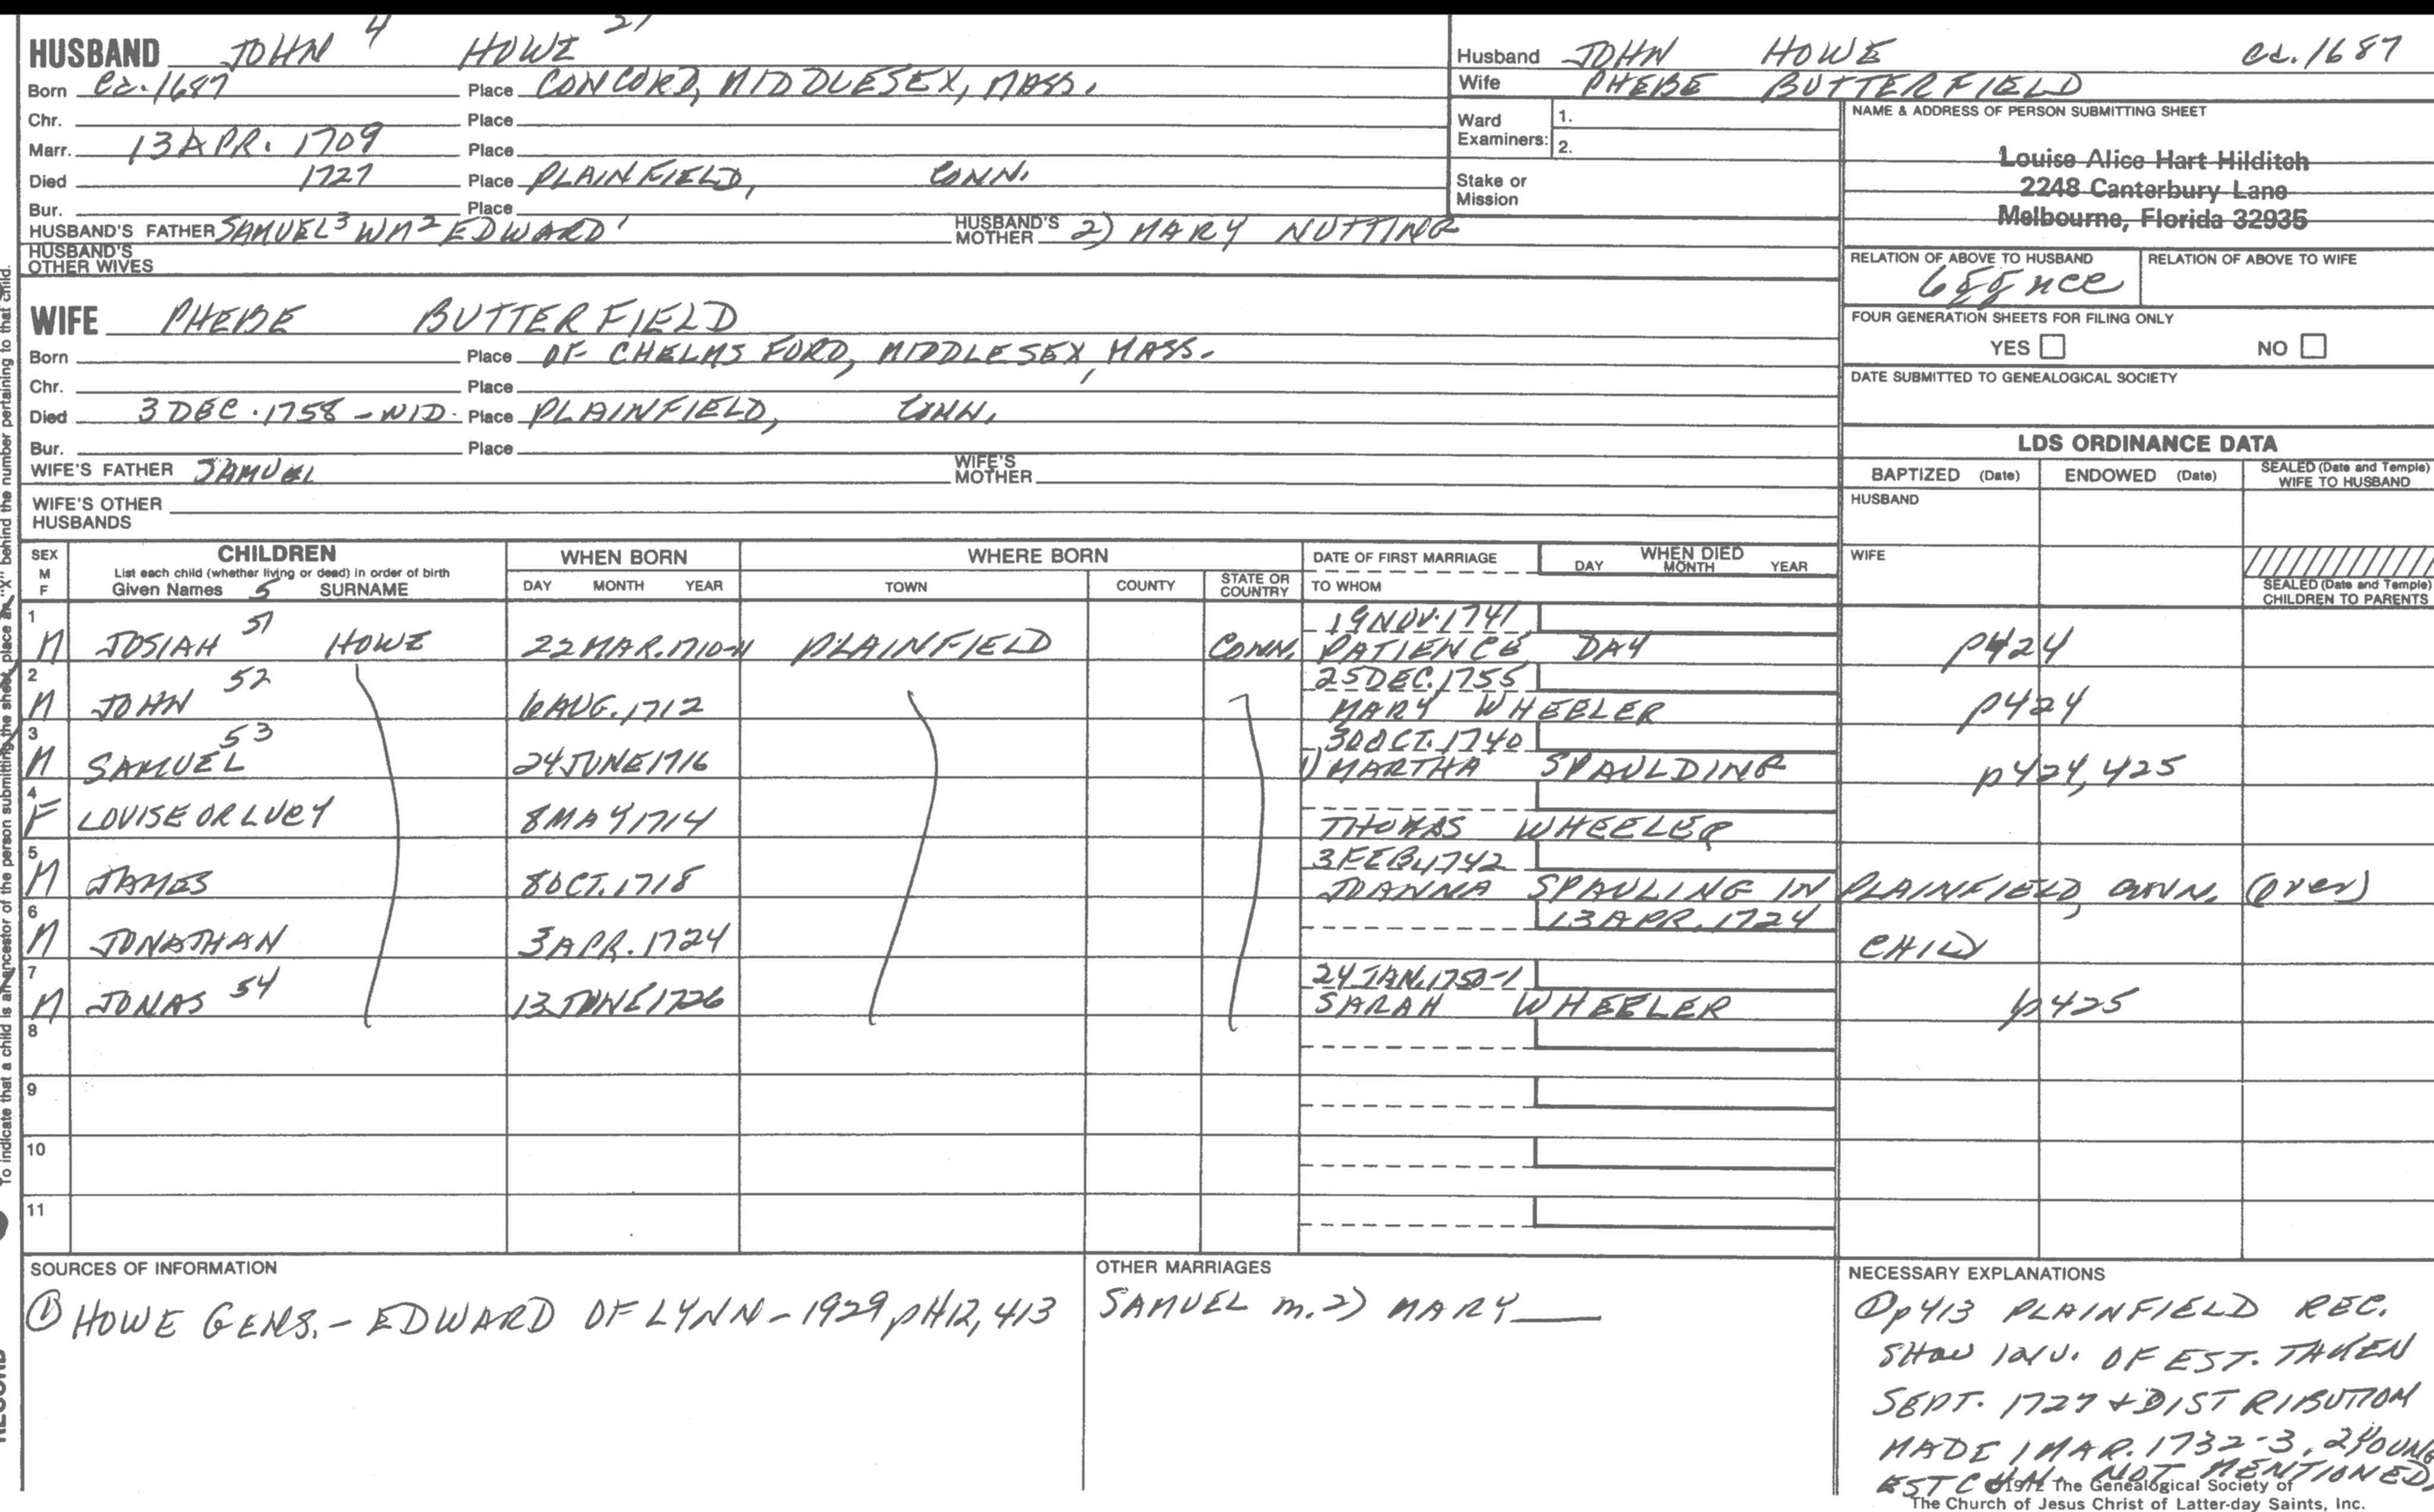 HUSBAND JOHN 4 HOWE 21
Born ca. 1687 Place CONCORD, MIDDLESEX, MASS.
Chr. Place
Marr. 13 APR. 1709 Place
Died 1727 Place PLAINFIELD, CONN.
Bur. Place
HUSBAND'S FATHER SAMUEL3 WM2 EDWARD1 HUSBAND'S MOTHER 2) MARY NUTTING
HUSBAND'S OTHER WIVES
Husband JOHN HOWE ca. 1687
Wife PHEBE BUTTERFIELD
Ward Examiners: 1.
2.
Stake or Mission
NAME & ADDRESS OF PERSON SUBMITTING SHEET
Louise Alice Hart Hilditch
2248 Canterbury Lane
Melbourne, Florida 32935
RELATION OF ABOVE TO HUSBAND RELATION OF ABOVE TO WIFE
6gg nce
FOUR GENERATION SHEETS FOR FILING ONLY
YES NO
DATE SUBMITTED TO GENEALOGICAL SOCIETY
WIFE PHEBE BUTTERFIELD
Born Place OF CHELMSFORD, MIDDLESEX, MASS.
Chr. Place
Died 3 DEC. 1758 - WID. Place PLAINFIELD, CONN.
Bur. Place
WIFE'S FATHER SAMUEL WIFE'S MOTHER
WIFE'S OTHER HUSBANDS
LDS ORDINANCE DATA
BAPTIZED (Date) ENDOWED (Date) SEALED (Date and Temple) WIFE TO HUSBAND
HUSBAND
WIFE
SEALED (Date and Temple) CHILDREN TO PARENTS
SEX M F CHILDREN WHEN BORN WHERE BORN DATE OF FIRST MARRIAGE WHEN DIED
List each child (whether living or dead) in order of birth
Given Names 5 SURNAME DAY MONTH YEAR TOWN COUNTY STATE OR COUNTRY TO WHOM DAY MONTH YEAR
1 19 NOV. 1741
M JOSIAH 51 HOWE 22 MAR. 1710-11 PLAINFIELD CONN. PATIENCE DAY p424
2 25 DEC. 1755
M JOHN 52 6 AUG. 1712 MARY WHEELER p424
3 30 OCT. 1740
M SAMUEL 53 24 JUNE 1716 1) MARTHA SPAULDING p424, 425
4
F LOUISE OR LUCY 8 MAY 1714 THOMAS WHEELER
5 3 FEB. 1742
M JAMES 8 OCT. 1718 JOANNA SPAULING IN PLAINFIELD, CONN. (over)
6 13 APR. 1724
M JONATHAN 3 APR. 1724 CHILD
7 24 JAN. 1750-1
M JONAS 54 13 JUNE 1726 SARAH WHEELER p425
8
9
10
11
SOURCES OF INFORMATION
① HOWE GENS. - EDWARD OF LYNN - 1929, p412, 413
OTHER MARRIAGES
SAMUEL m. 2) MARY
NECESSARY EXPLANATIONS
① p413 PLAINFIELD REC.
SHOW INV. OF EST. TAKEN
SEPT. 1727 + DISTRIBUTION
MADE 1 MAR. 1732-3, 2 YOUNG
EST CHN. NOT MENTIONED
©1972 The Genealogical Society of
The Church of Jesus Christ of Latter-day Saints, Inc.
To indicate that a child is an ancestor of the person submitting the sheet, place an "X" behind the number pertaining to that child.
RECORD